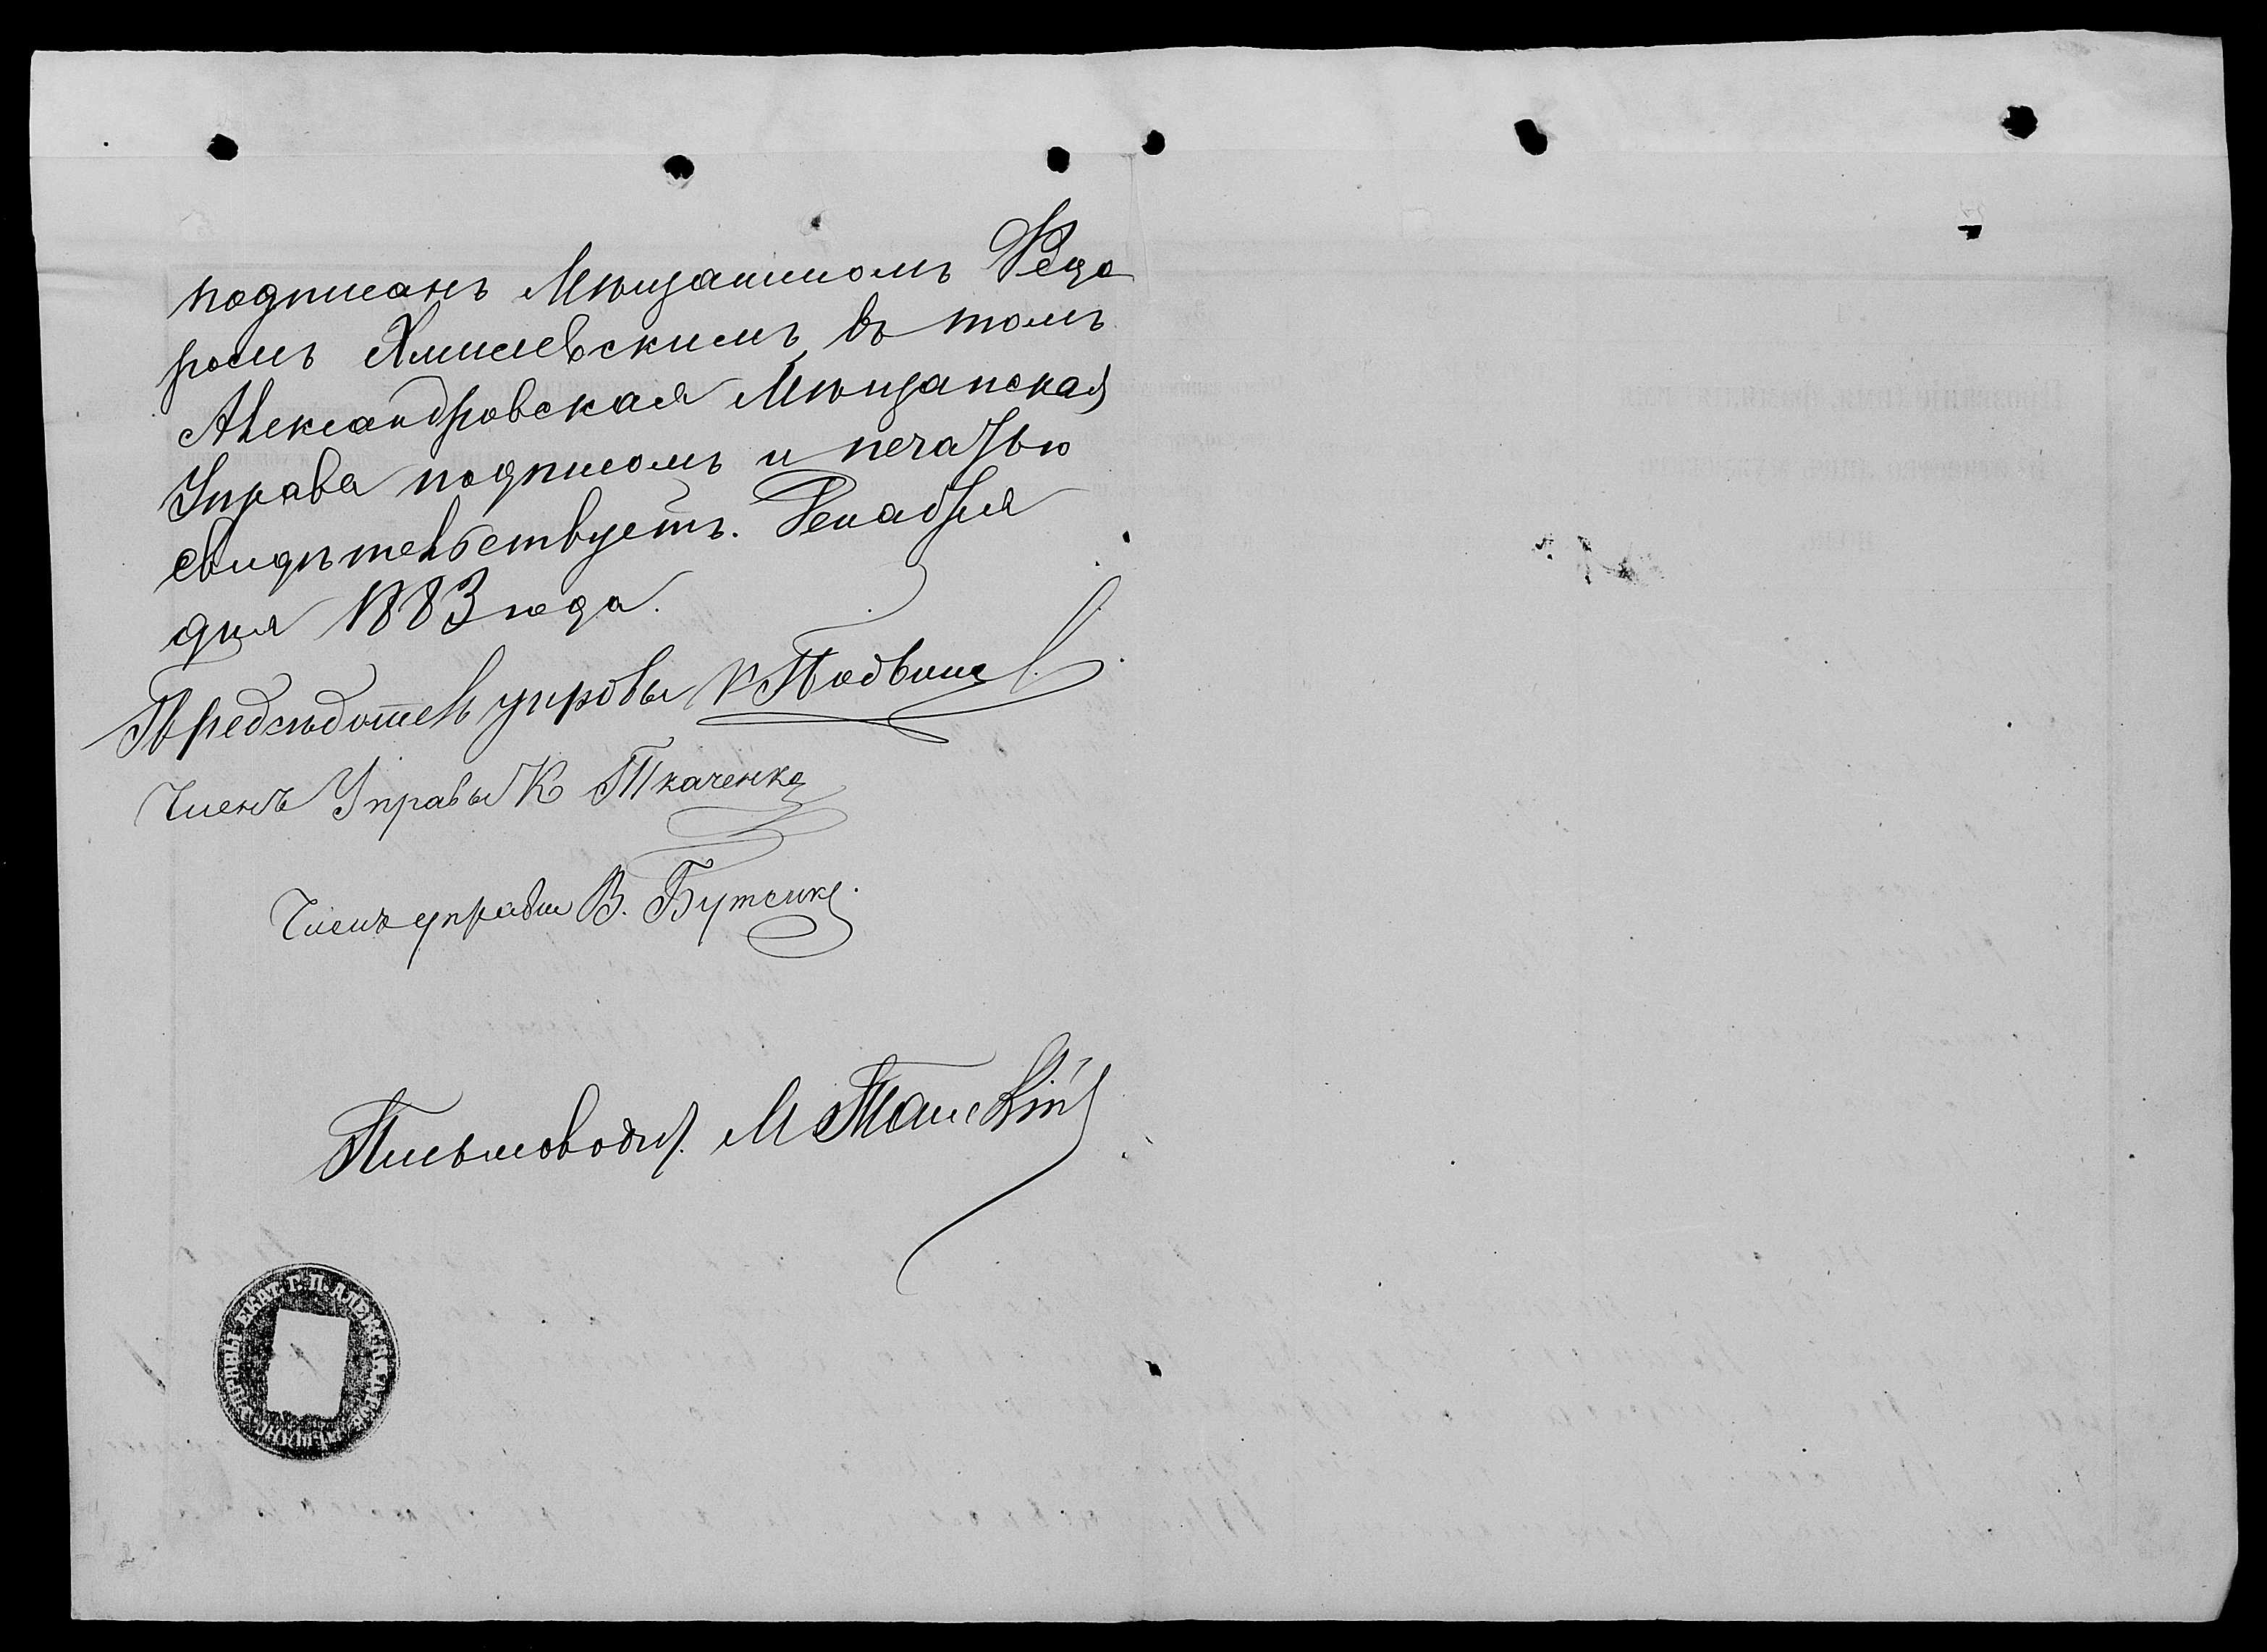 подписанъ Мѣщаниномъ Ѳедо
ромъ Хмилевскимъ въ томъ
Александровская Мѣщанская
Управа подписомъ и печатью
свидѣтельствуетъ. Декабря
дня 1883 года.
Предсѣдатель управы
Членъ Управы К Ткаченко
Членъ управы В. Бутенко.
Письмовод. М
ЕКАТ. Г. П. АЛЕКСАНДРОВ. МѢЩАНС. УПРАВЫ